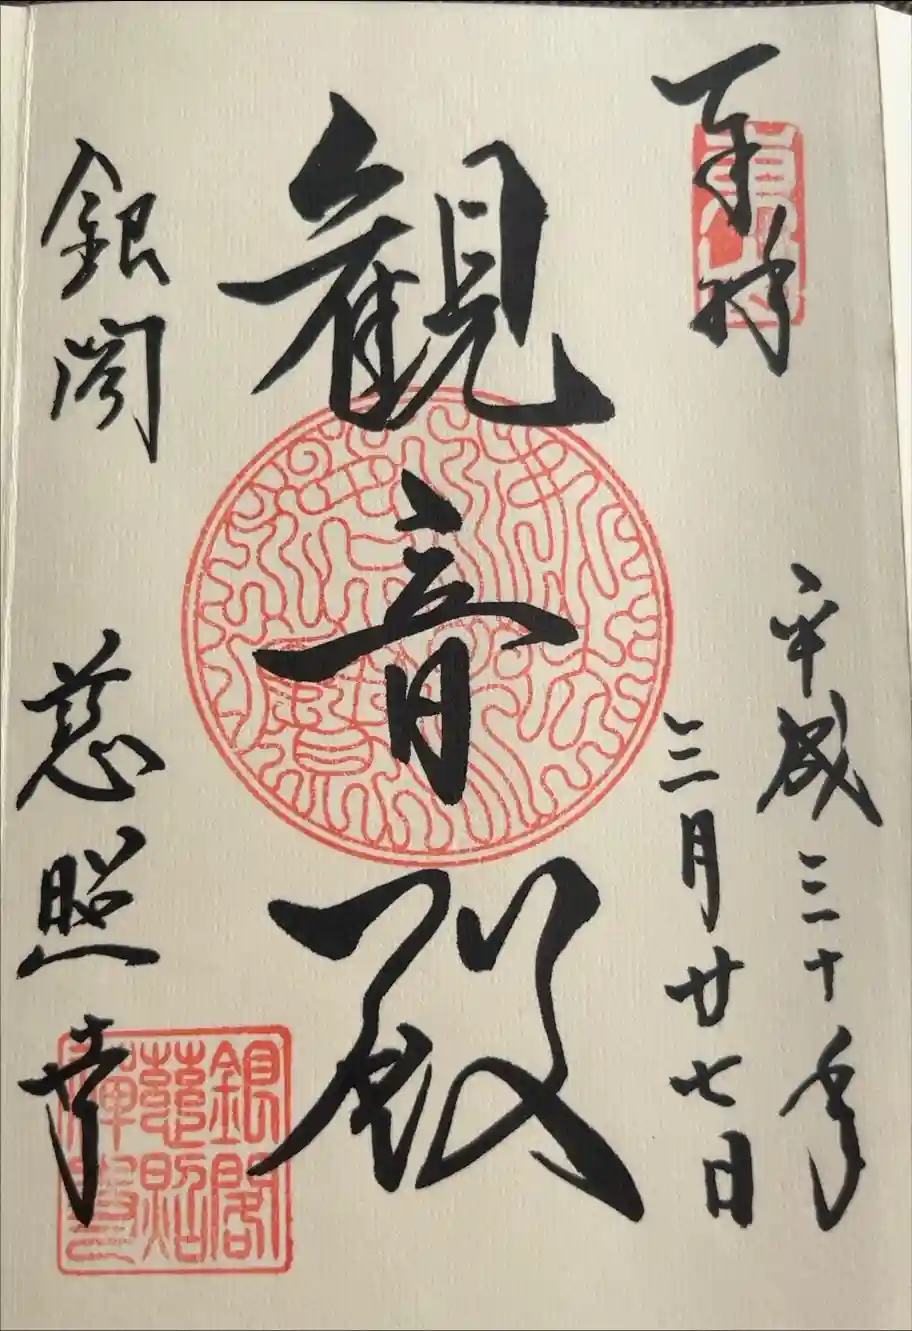 奉拝
東山
平成三十年
三月廿七日
観音殿
銀閣
慈照寺
銀閣
慈照
禅寺